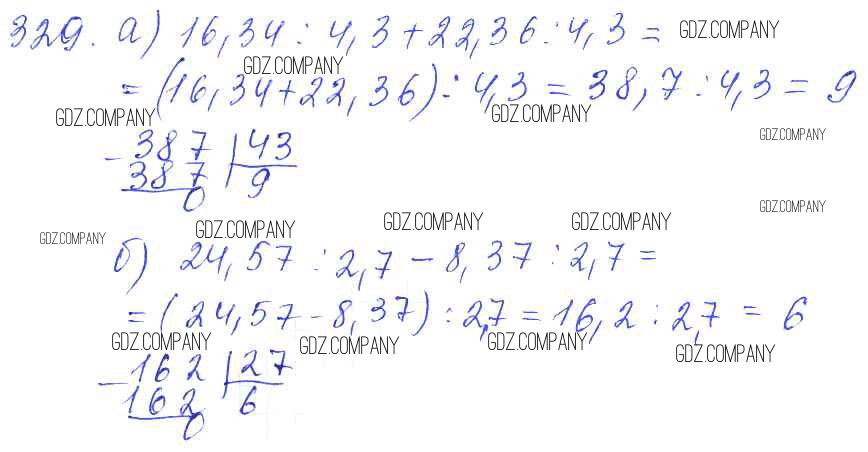 329. а) 16,34 : 4,3 + 22,36 : 4,3 = GDZ.COMPANY
GDZ.COMPANY
= (16,34 + 22,36) : 4,3 = 38,7 : 4,3 = 9
GDZ.COMPANY GDZ.COMPANY
GDZ.COMPANY
- 387 | 43
387 | 9
0
GDZ.COMPANY
GDZ.COMPANY GDZ.COMPANY GDZ.COMPANY GDZ.COMPANY
б) 24,57 : 2,7 - 8,37 : 2,7 =
= (24,57 - 8,37) : 2,7 = 16,2 : 2,7 = 6
GDZ.COMPANY GDZ.COMPANY GDZ.COMPANY GDZ.COMPANY
- 162 | 27
162 | 6
0